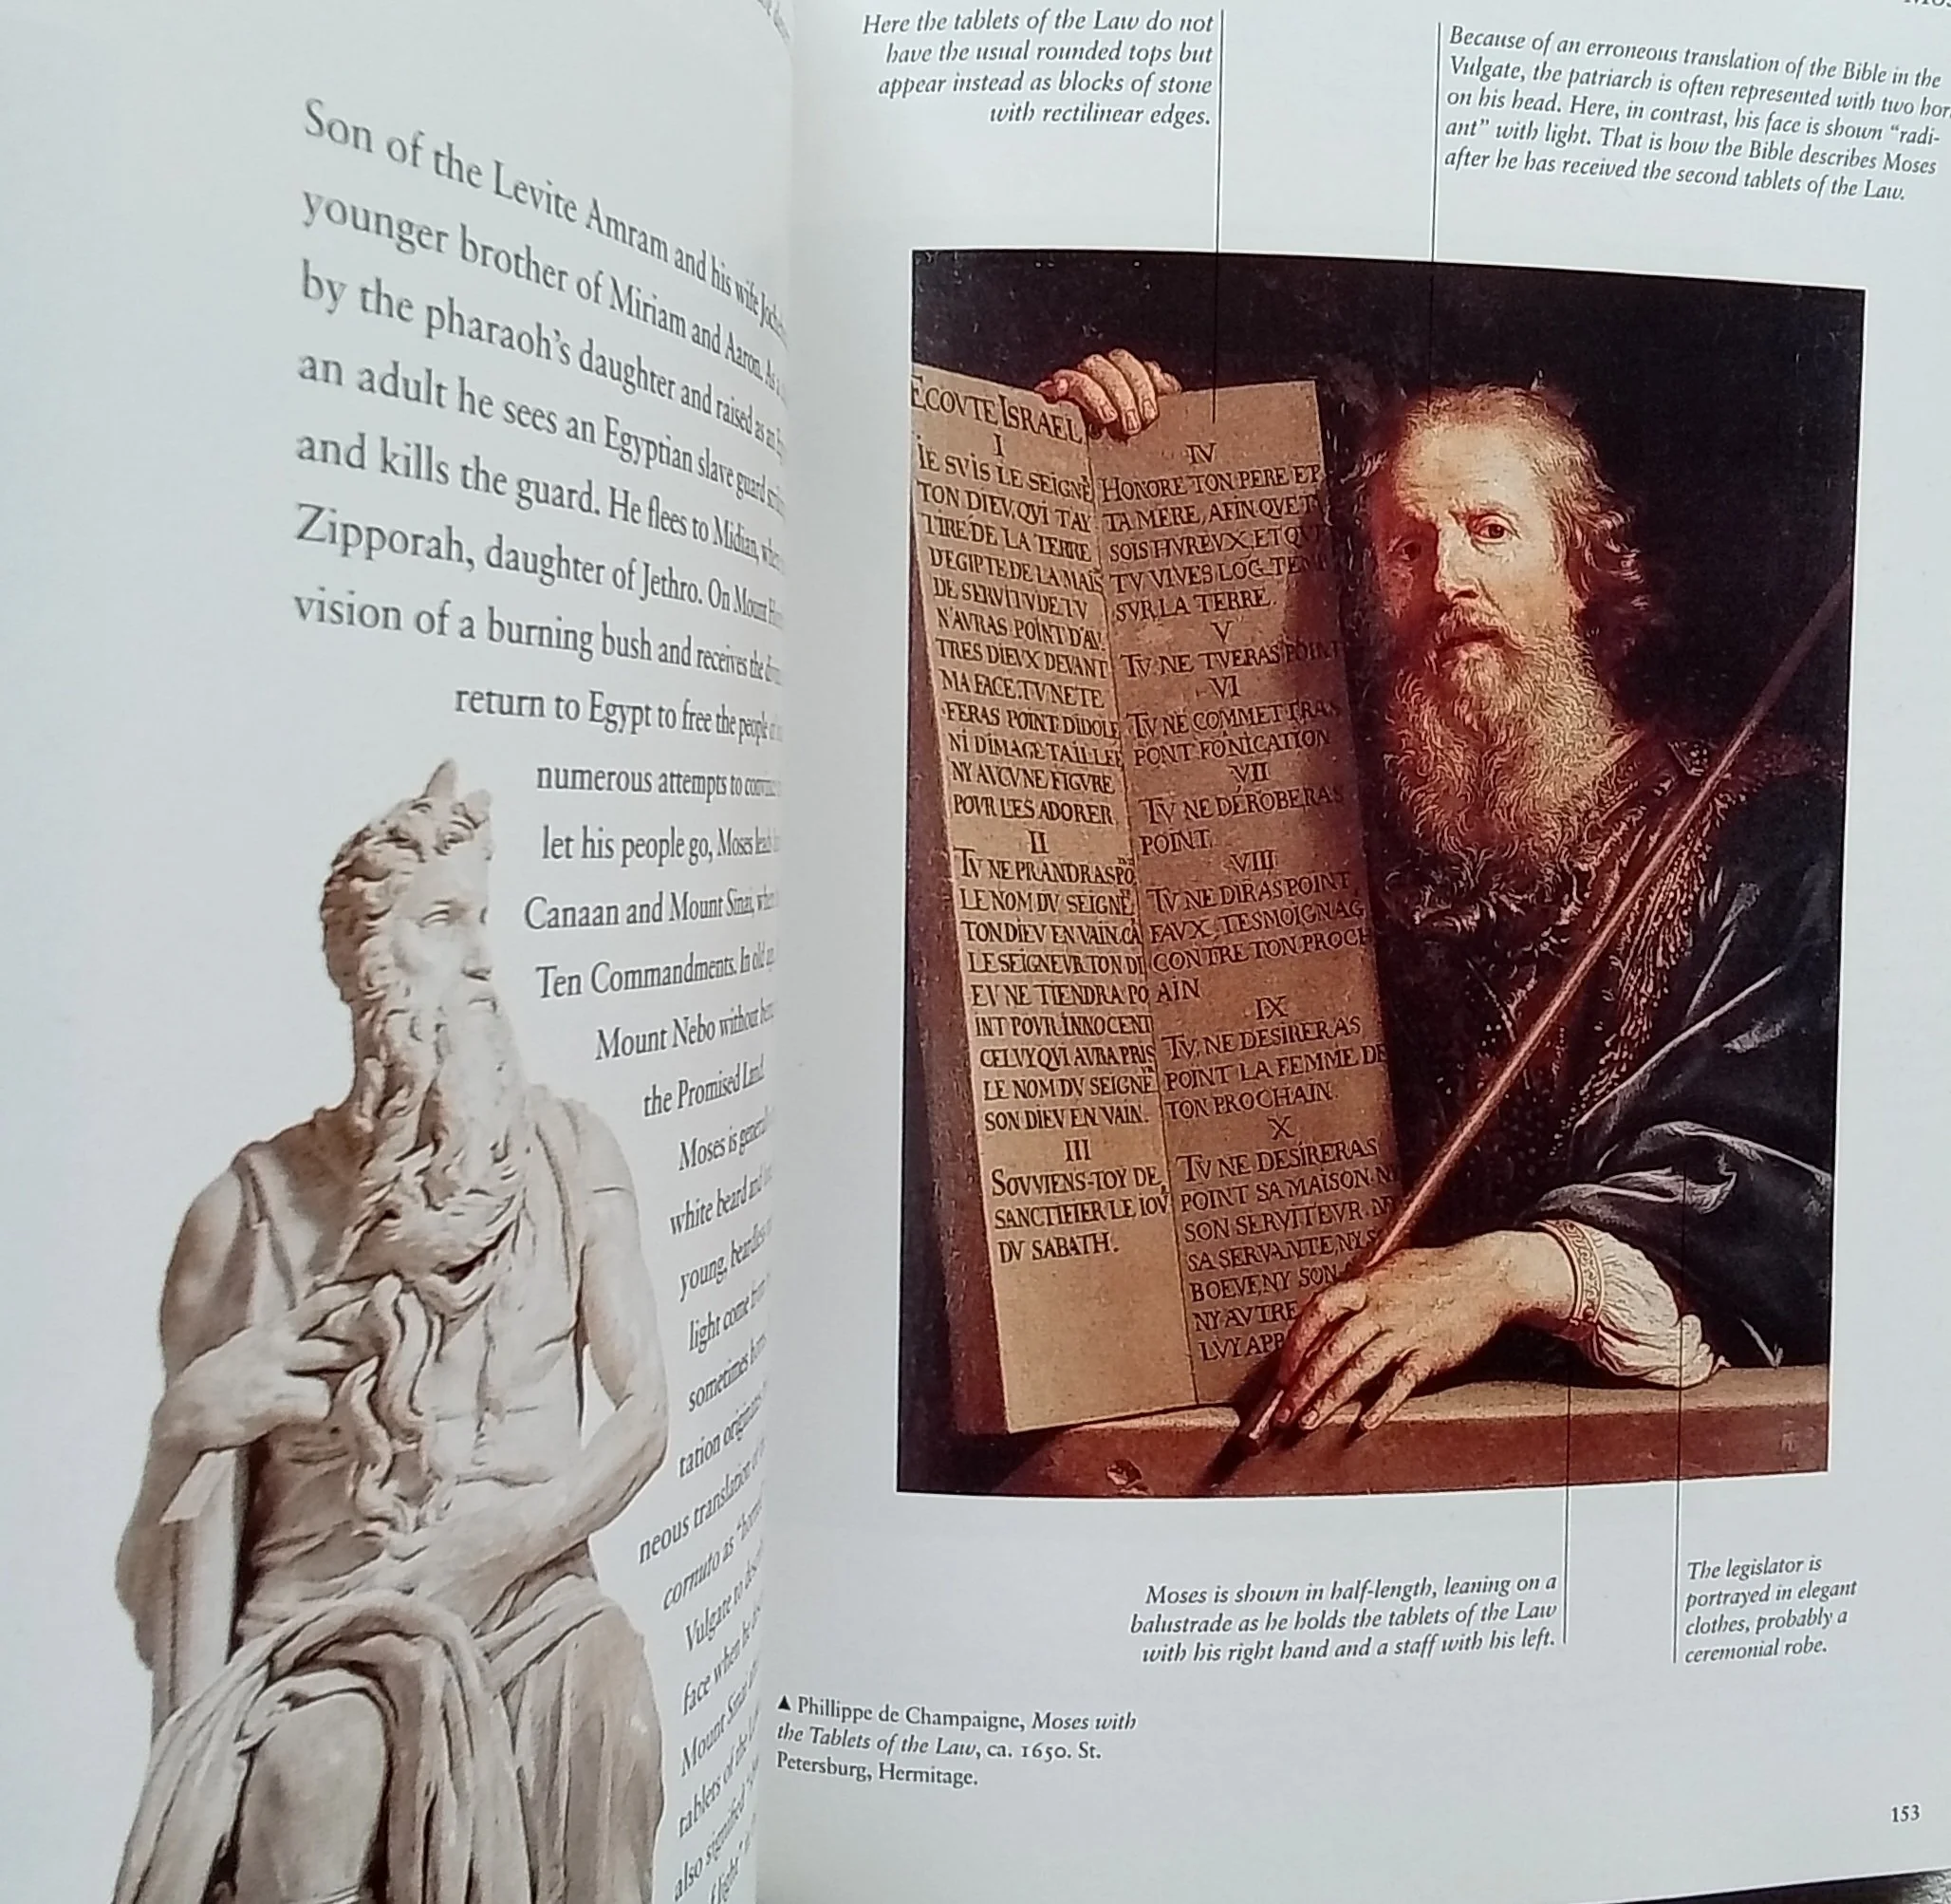 Son of the Levite Amram and his wife
younger brother of Miriam and Aaron. As
by the pharaoh's daughter and raised as an
an adult he sees an Egyptian slave guard
and kills the guard. He flees to Midian,
Zipporah, daughter of Jethro. On Mount
vision of a burning bush and receives the
return to Egypt to free the people
numerous attempts to
let his people go, Moses
Canaan and Mount Sinai,
Ten Commandments. In old
Mount Nebo without
the Promised Land.
Moses is
white beard and
young,
light come from
sometimes
tation
neous translation
cornuto as
Vulgate to
face when he
Mount Sinai
tablets of the
also signified
Here the tablets of the Law do not
have the usual rounded tops but
appear instead as blocks of stone
with rectilinear edges.
Because of an erroneous translation of the Bible in the
Vulgate, the patriarch is often represented with two
on his head. Here, in contrast, his face is shown "radi-
ant" with light. That is how the Bible describes Moses
after he has received the second tablets of the Law.
ECOVTE ISRAEL
I
IE SVIS LE SEIGNE
TON DIEV, QVI TAY
TIRE DE LA TERRE
DEGIPTE DE LA MAIS
DE SERVITVDE TV
N'AVRAS POINT D'AV
TRES DIEVX DEVANT
MA FACE. TV NE TE
FERAS POINT DIDOLE
NI DIMAGE TAILLEE
NY AVCVNE FIGVRE
POVR LES ADORER.
II
TV NE PRANDRAS PO
LE NOM DV SEIGNE
TON DIEV EN VAIN. CA
LE SEIGNEVR TON DI
EV NE TIENDRA PO
INT POVR INNOCENT
CELVY QVI AVRA PRIS
LE NOM DV SEIGNE
SON DIEV EN VAIN.
III
SOVVIENS-TOY DE
SANCTIFIER LE IOV
DV SABATH.
IV
HONORE TON PERE ET
TA MERE, AFIN QVE T
SOIS HVREVX ET QV
TV VIVES LOG-TEM
SVR LA TERRE.
V
TV NE TVERAS POINT
VI
TV NE COMMETTRAS
PONT FONICATION
VII
TV NE DEROBERAS
POINT.
VIII
TV NE DIRAS POINT
FAVX TESMOIGNAG
CONTRE TON PROCH
AIN
IX
TV NE DESIRERAS
POINT LA FEMME DE
TON PROCHAIN.
X
TV NE DESIRERAS
POINT SA MAISON. N
SON SERVITEVR N
SA SERVANTE, NY S
BOEVE, NY SON
NY AVTRE
LVY APP
Moses is shown in half-length, leaning on a
balustrade as he holds the tablets of the Law
with his right hand and a staff with his left.
The legislator is
portrayed in elegant
clothes, probably a
ceremonial robe.
▲ Phillippe de Champaigne, Moses with
the Tablets of the Law, ca. 1650. St.
Petersburg, Hermitage.
153